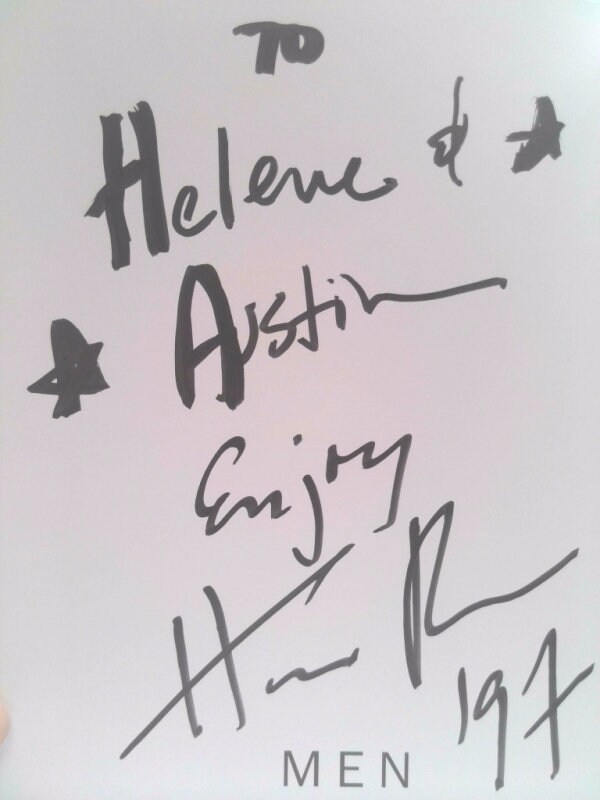 TO
Helene &
Austin
Enjoy
197
MEN